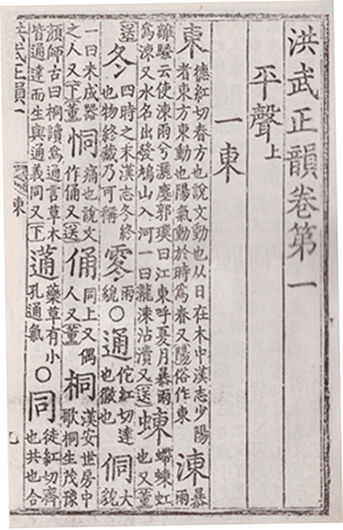 洪武正韻卷第一
平聲上
一東
東德紅切春方也說文動也从日在木中漢志少陽者東方東動也陽氣動於時爲春又陽俗作東涷暴雨
離騷云使涷雨兮灑塵郭璞曰江東呼夏月暴雨爲涷又水名出發鳩山入河一曰瀧涷沾漬又送蝀螮蝀虹也又董
送冬四時之末漢志冬終也物終藏乃可稱䨦雨貌○通佗紅切達也徹也侗大貌
一曰未成器之人又董恫痛也說文作俑又送俑同上又偶人又董桐漢安世房中歌桐生茂豫
顏師古曰桐讀爲通言草木皆通達而生與通義同又下蓪藥草有小孔通氣○同徒紅切齊也共也合
洪武正韻一
東
九